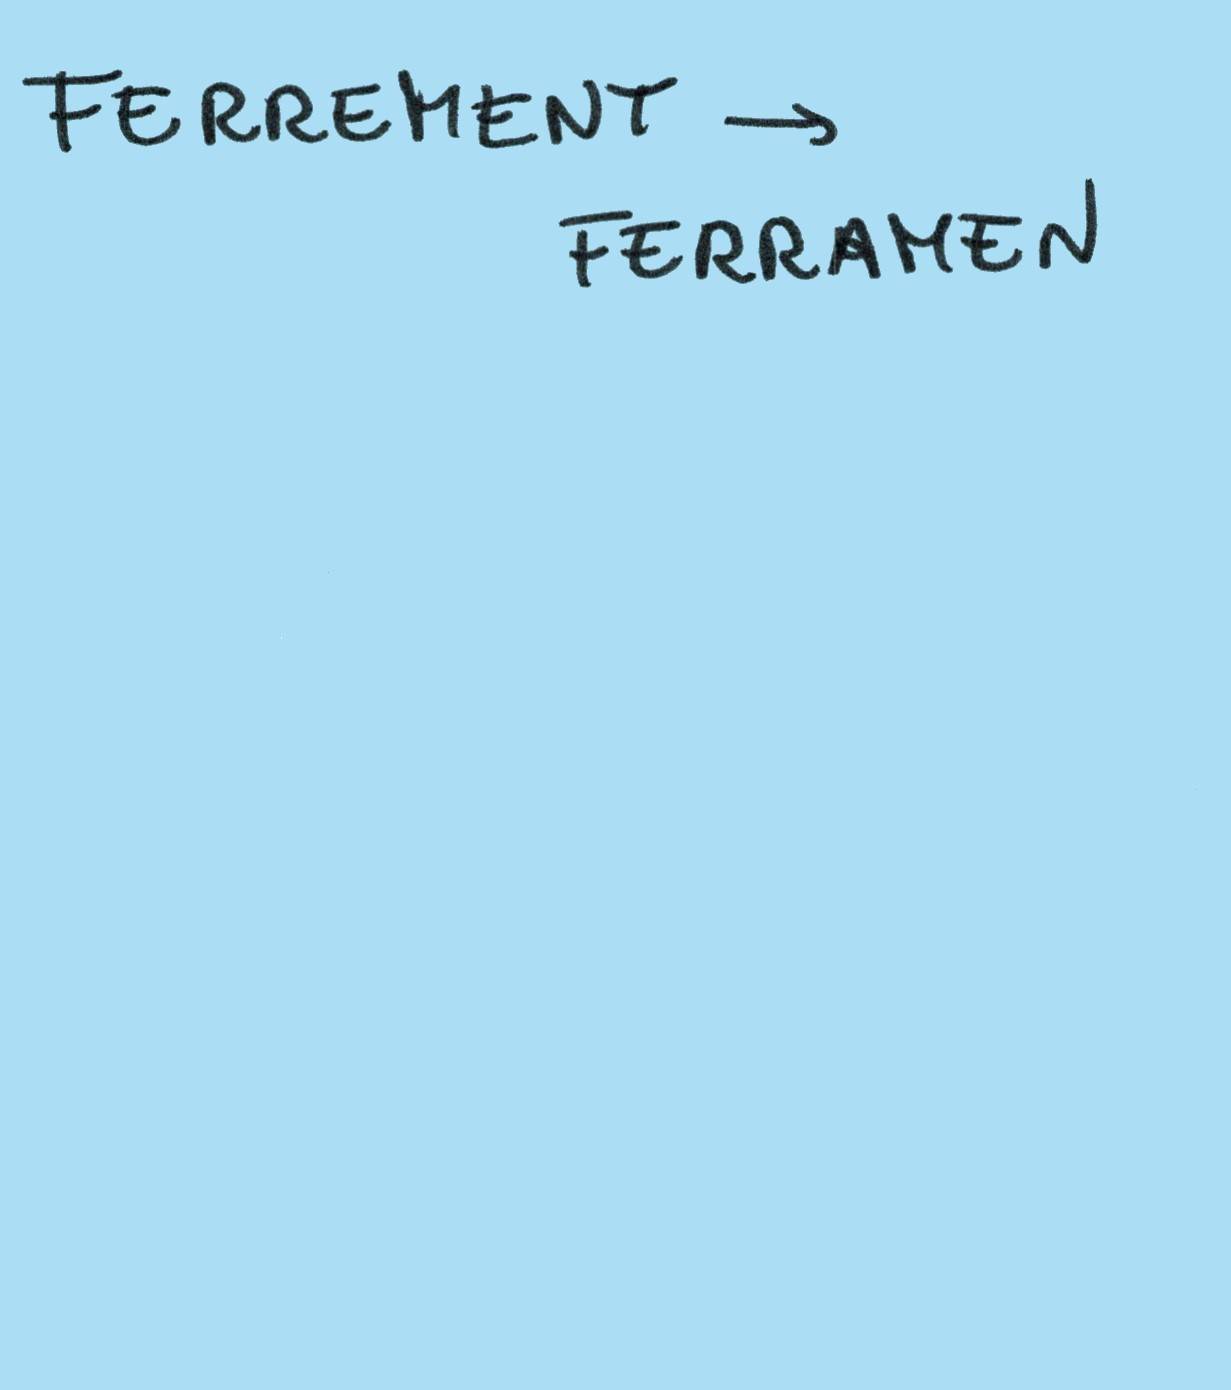 FERREMENT →
FERRAMEN